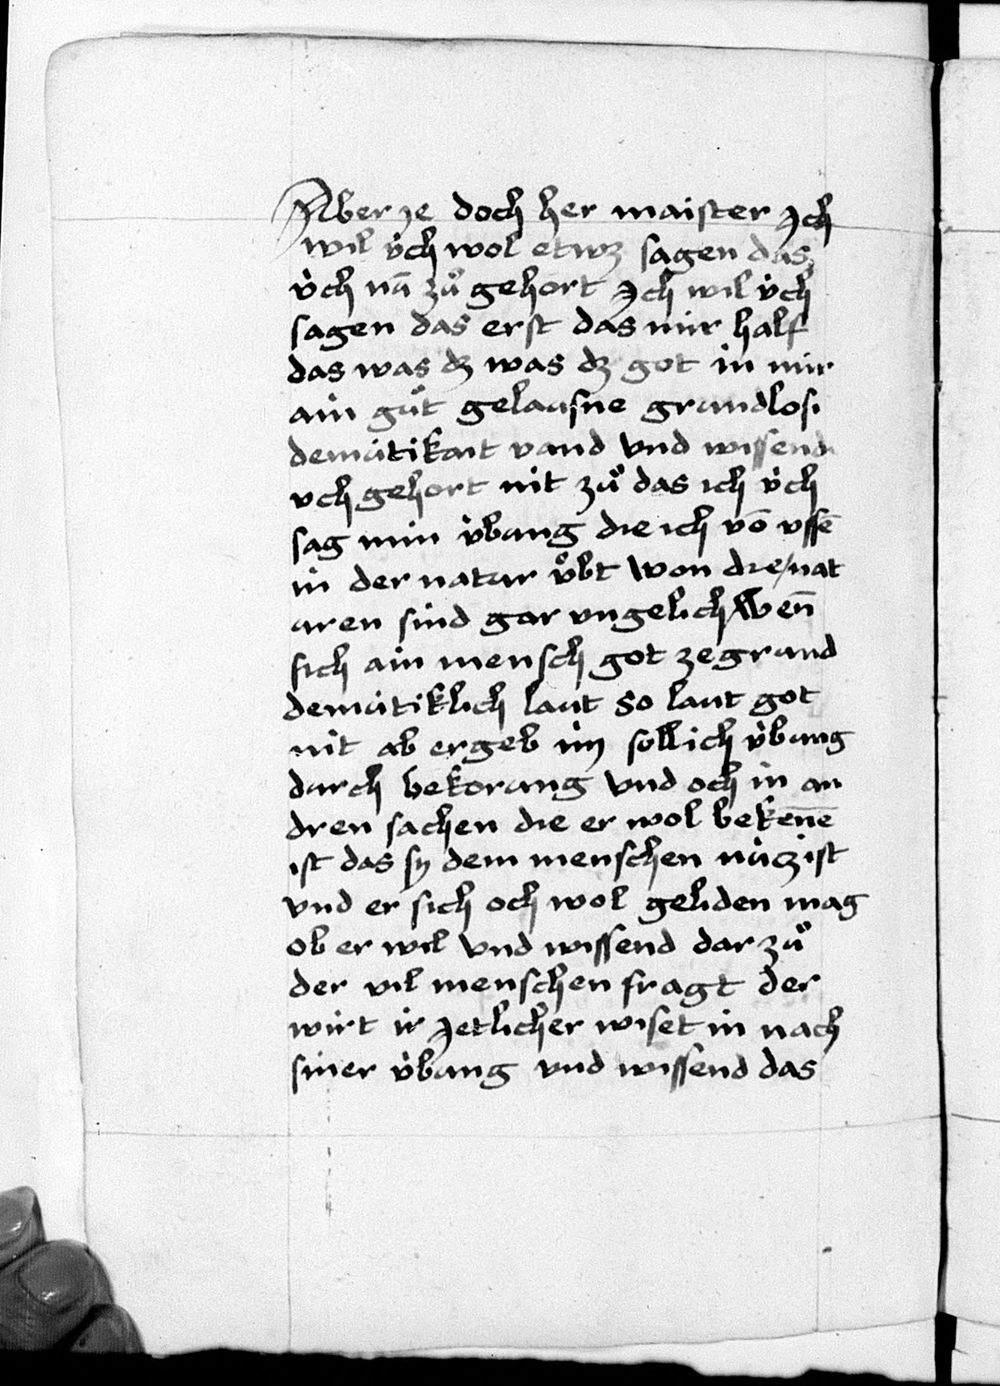 Aber ie doch her maister Jch
wil v́ch wol etwz sagen das
v́ch nū zuͦ gehort Jch wil v́ch
sagen das erst das mir half
das was dz was dz got in mir
ain guͦt gelausne grundlosi
demuͤtikait vand vnd wissend
vch gehort nit zuͦ das ich v́ch
sag min v́bung die ich vō vssē
in der natur vͤbt won die nat
uren sind gar vngelich Wen̄
sich ain mensch got ze grund
demuͤtiklich laut so laut got
nit ab er geb im sollich v́bung
durch bekorung vnd och in an
dren sachen die er wol bekēnē
ist das sy dem menschen nu̍cz ist
vnd er sich och wol geliden mag
ob er wil vnd wissend dar zuͦ
der vil menschen fragt der
wirt ir Jetlicher wiset in nach
siner v́bung vnd wissend das